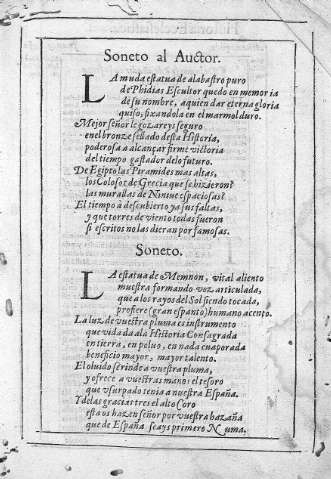 Soneto al Auctor.
LA muda estatua de alabastro puro
de Phidias Escultor quedo en memoria
de su nombre, a quien dar eterna gloria
quiso, fixandola en el marmol duro.
Mejor señor le gozareys seguro
en el bronze sellado desta Historia,
poderosa a alcançar firme victoria
del tiempo gastador de lo futuro.
De Egipto las Piramides mas altas,
los Colosos de Grecia que se hizieron
las murallas de Niniue espaciosas
El tiempo à descubierto ya sus faltas,
y que torres de viento todas fueron
si escritos no las dieran por famosas.
Soneto.
LA estatua de Memnon, vital aliento
muestra formando voz articulada,
que a los rayos del Sol siendo tocada,
profiere (gran espanto) humano acento.
La luz de vuestra pluma es instrumento
que vida da ala Historia Consagrada
en tierra, en peluo, en nada euaporada
beneficio mayor, mayor talento.
El oluido se rinde a vuestra pluma,
y ofrece a vuestras manos el tesoro
que vsurpado tenia a nuestra España.
Y de las gracias tres el alto Coro
esta os hazen señor por vuestra hazaña
que de España seays primero Numa.